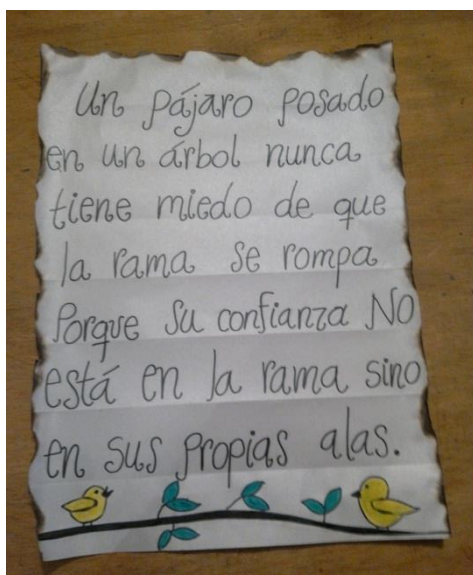 Un pájaro posado
en un árbol nunca
tiene miedo de que
la rama se rompa
Porque su confianza NO
está en la rama sino
en sus propias alas.